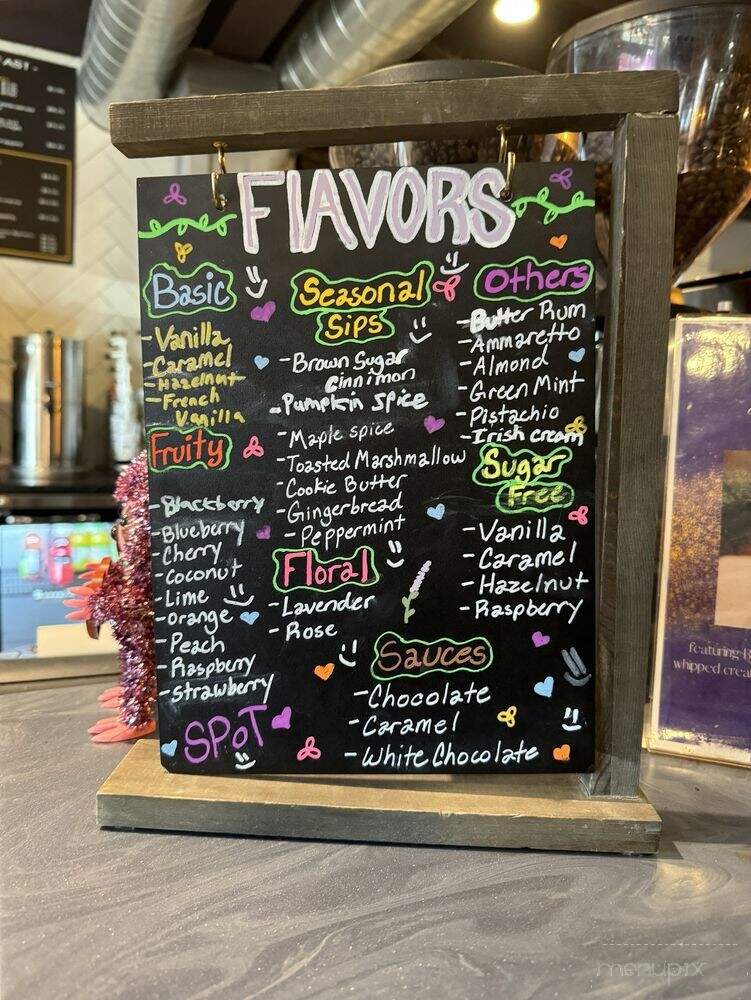 AST -
FlAVORS
Basic
- Vanilla
- Caramel
- Hazelnut
- French
Vanilla
Fruity
- Blackberry
- Blueberry
- Cherry
- Coconut
- Lime
- Orange
- Peach
- Raspberry
- Strawberry
SPOT
Seasonal
Sips
- Brown Sugar
Cinnimon
- Pumpkin Spice
- Maple spice
- Toasted Marshmallow
- Cookie Butter
- Gingerbread
- Peppermint
Floral
- Lavender
- Rose
Others
- Butter Rum
- Ammaretto
- Almond
- Green Mint
- Pistachio
- Irish cream
Sugar
Free
- Vanilla
- Caramel
- Hazelnut
- Raspberry
Sauces
- Chocolate
- Caramel
- White Chocolate
featuring
whipped
menupix